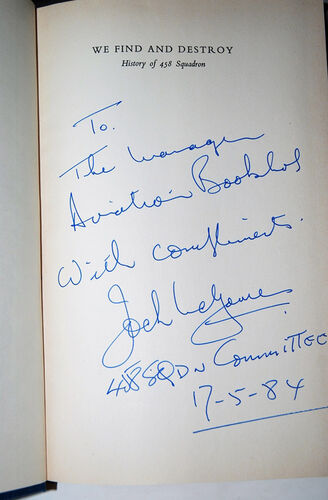 WE FIND AND DESTROY
History of 458 Squadron
To.
The Manager
Aviation
With compliments.
Jock
458 SQDN COMMITTEE
17-5-84